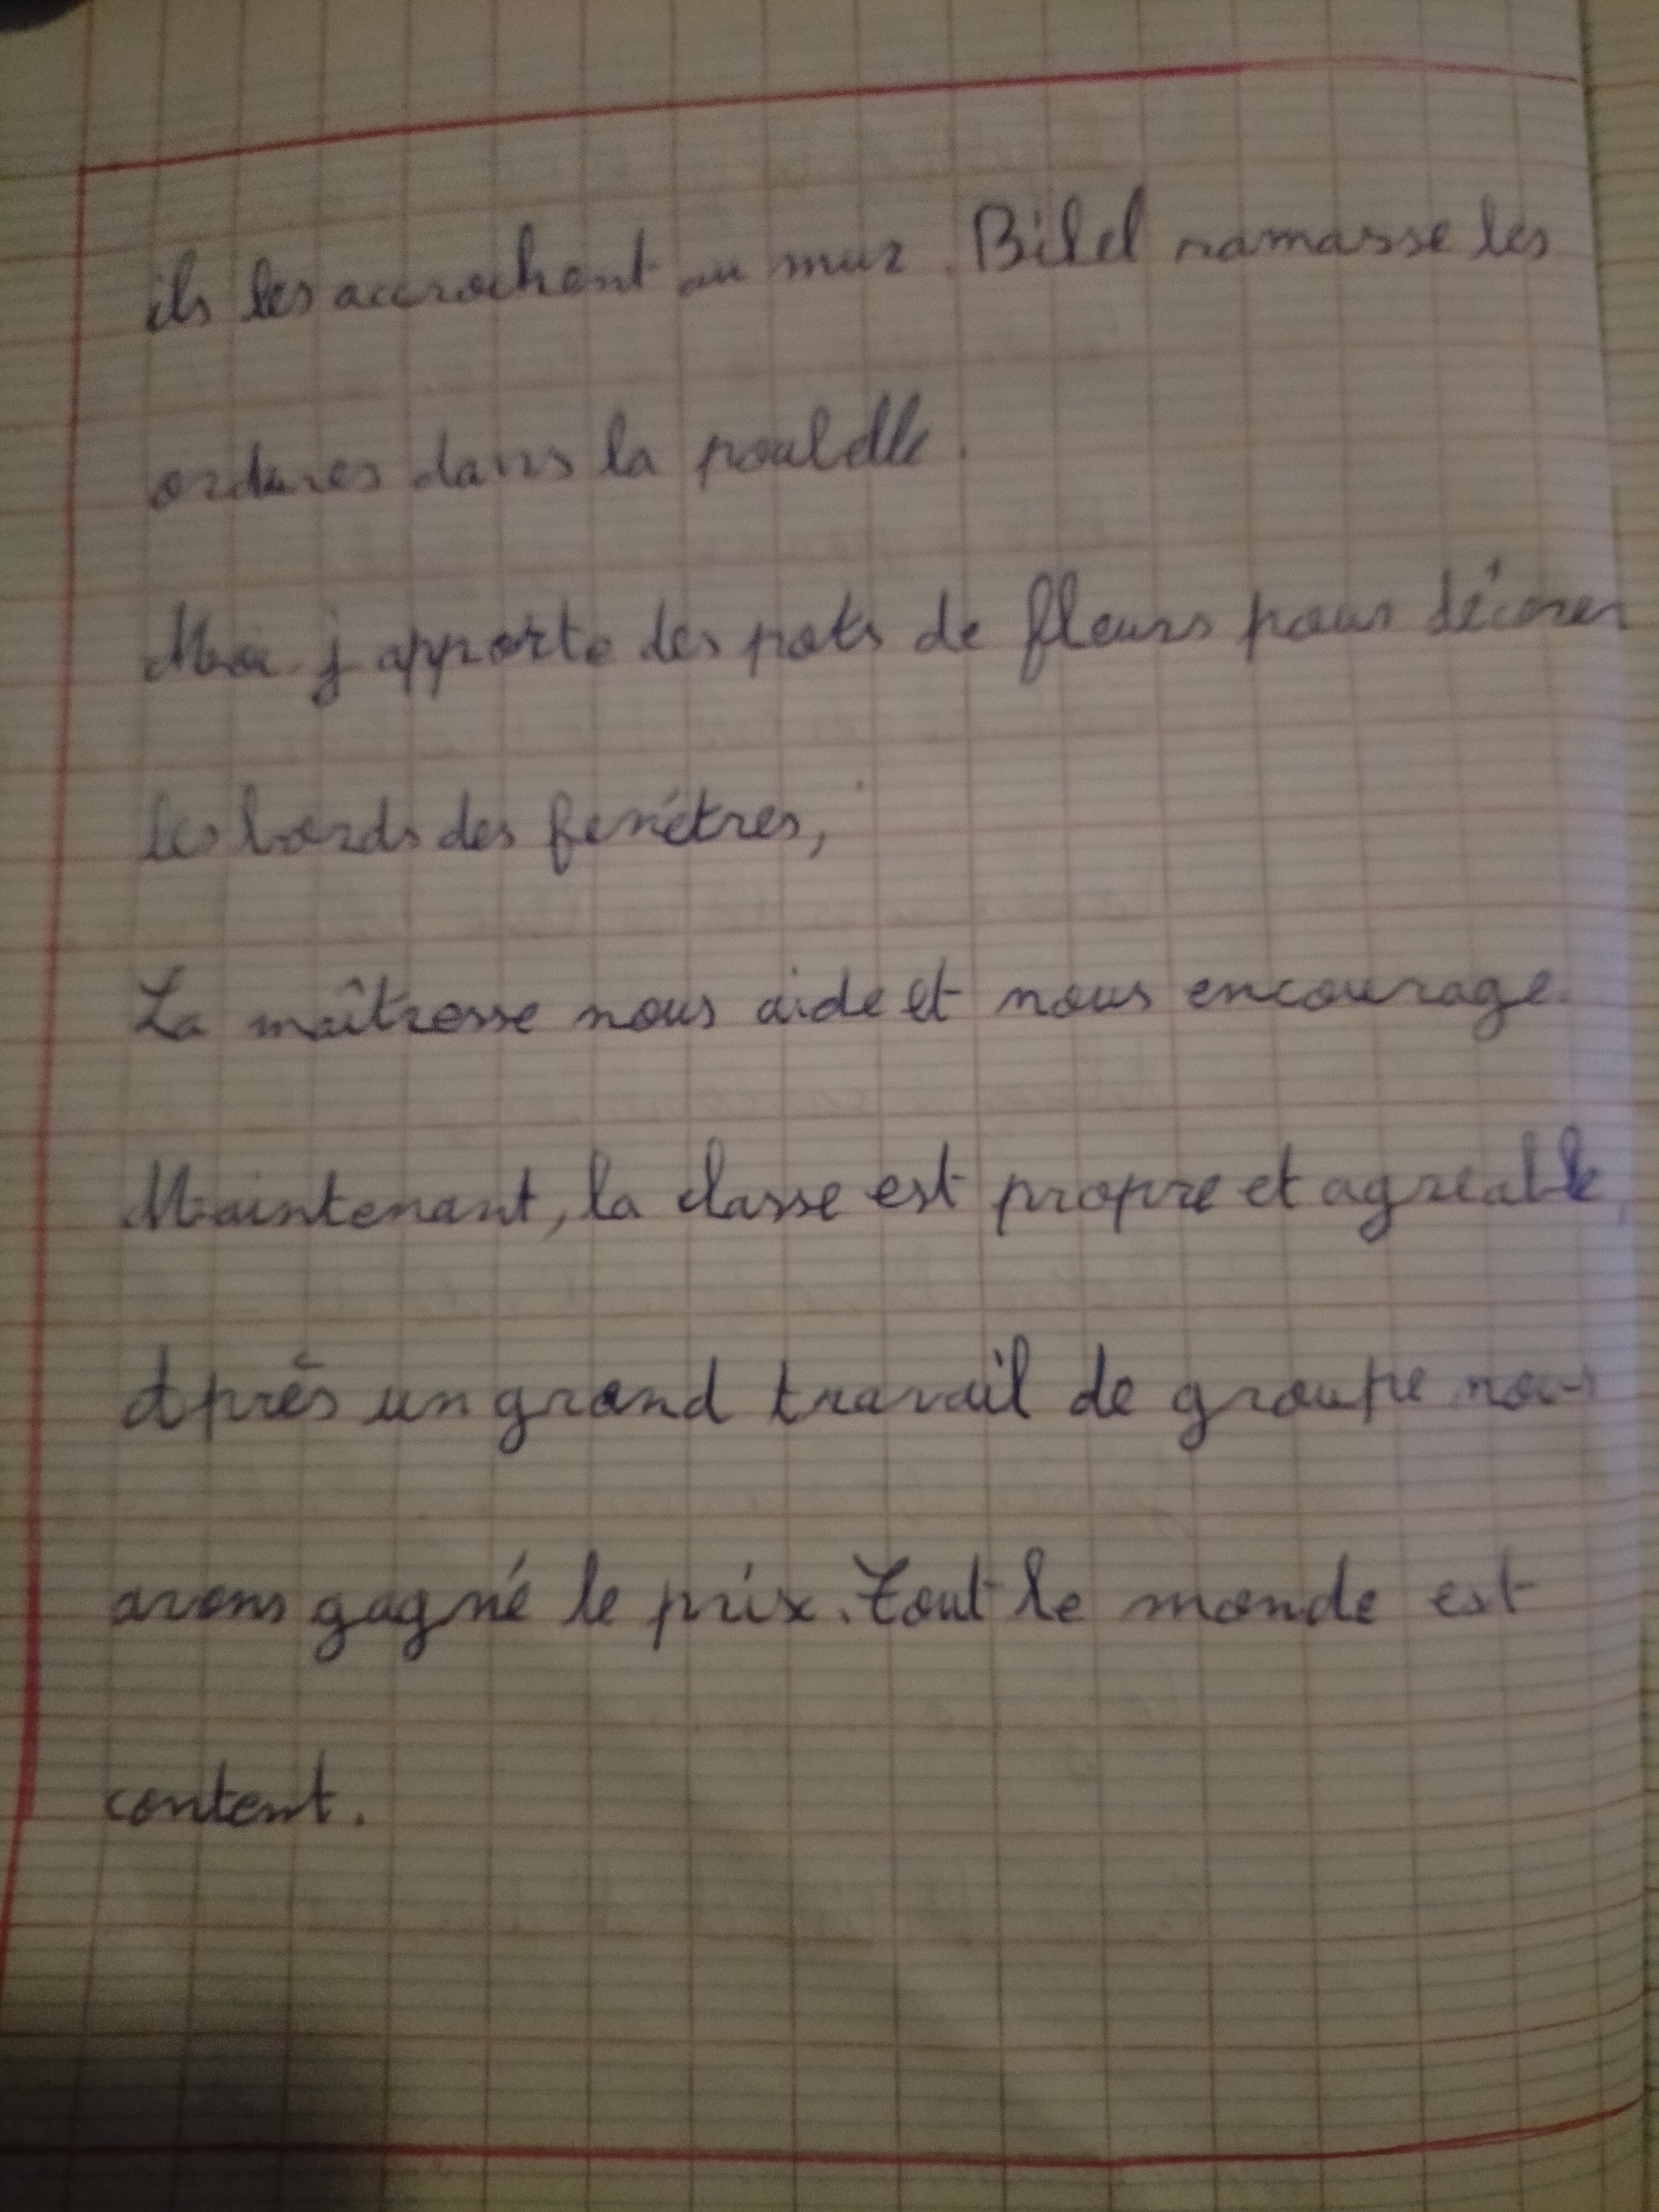 ils les accrochent au mur. Bilel ramasse les
ordures dans la poubelle.
Moi j apporte des pots de fleurs pour décorer
les bords des fenêtres,
La maîtresse nous aide et nous encourage.
Maintenant, la classe est propre et agreable,
Après un grand travail de groupe nous
avons gagné le prix. Tout le monde est
content.